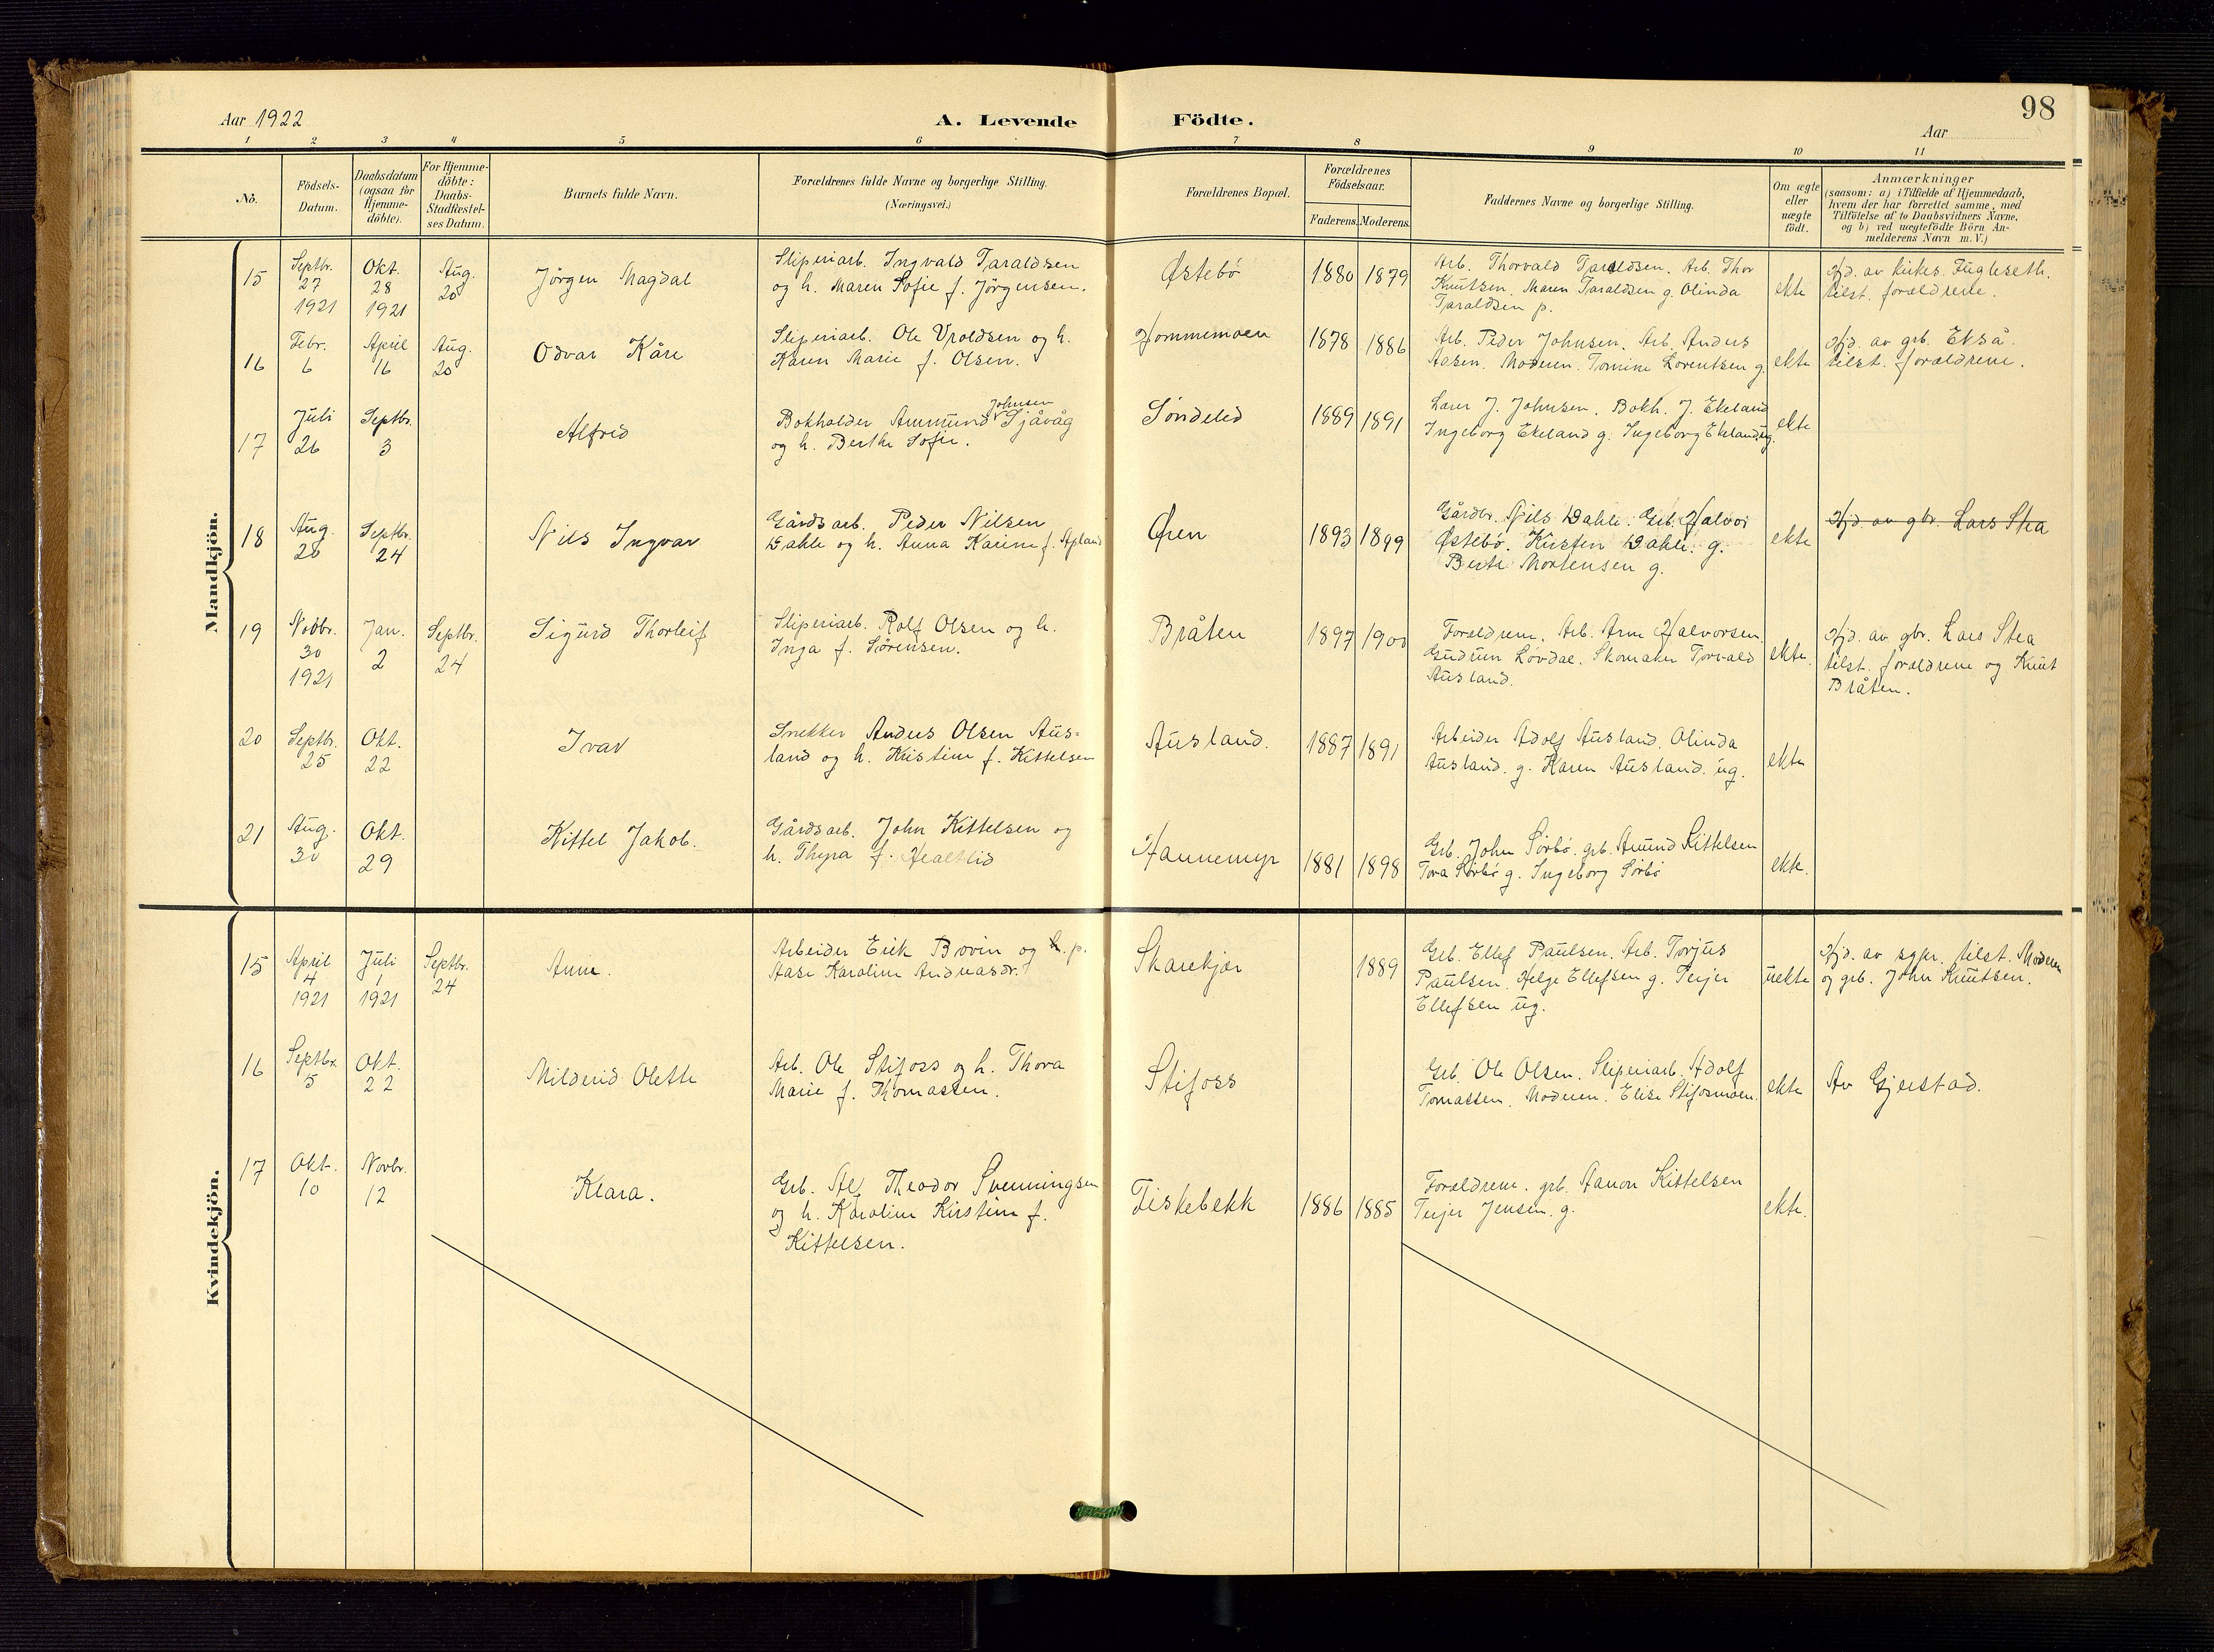 98
Aar 1922
A. Levende Födte.
Aar
1 2 3 4 5 6 7 8 9 10 11
No.
Födsels-
Datum.
Daabsdatum
(ogsaa for
Hjemme-
döbte).
For Hjemme-
döbte:
Daabs-
Stadfæstel-
ses Datum.
Barnets fulde Navn.
Forældrenes fulde Navne og borgerlige Stilling.
(Næringsvei.)
Forældrenes Bopæl.
Forældrenes
Födselsaar.
Faderens. Moderens.
Faddernes Navne og borgerlige Stilling.
Om ægte
eller
uægte
födt.
Anmærkninger
(saasom: a) i Tilfælde af Hjemmedaab,
hvem der har forrettet samme, med
Tilföielse af to Daabsvidners Navne,
og b) ved uægtefödte Börn An-
melderens Navn m. V.)
Mandkjön.
15
Septbr.
27
1921
Okt.
28
1921
Aug.
20
Jörgen Magdal
Sliperiarb. Ingvald Taraldsen
og h. Maren Sofie f. Jörgensen.
Østebö
1880 1879
Arb. Thorvald Taraldsen. Arb. Thor
Knutsen, Maren Taraldsen g. Olinda
Taraldsen p.
ekte
Hjd. av kirkes. Fugleseth.
tilst. forældrene.
16
Febr.
6
April
16
Aug.
20
Odvar Kåre
Sliperiarb. Ole Vroldsen og h.
Karen Marie f. Olsen.
Hommemoen
1878 1886
Arb. Peder Johnsen. Arb. Anders
Aasen. Moderen. Tomine Lorentsen g.
ekte
Hjd. av grb. Ekså.
tilst. forældrene.
17
Juli
26
Septbr.
3
Alfred
Johnsen
Bokholder Ammund Sjåvåg
og h. Berthe Sofie.
Söndeled
1889 1891
Lærer J. Johnsen. Bokh. J. Ekeland
Ingeborg Ekeland g. Ingeborg Ekeland ug.
ekte
18
Aug.
20
Septbr.
24
Nils Ingvar
Gårdsarb. Peder Nilsen
Dahle og h. Anna Karine f. Apland
Øren
1893 1899
Gårdbr. Nils Dahle. Grb. Halvor
Østebö. Kirsten Dahle. g.
Berte Mortensen g.
ekte
Hjd. av gbr. Lars Stea
19
Novbr.
30
1921
Jan.
2
Septbr.
24
Sigurd Thorleif
Sliperiarb. Rolf Olsen og h.
Inga f. Sörensen.
Bråten
1897 1900
Forældrene. Arb. Arne Halvorsen.
Gudrun Lövdal. Skomaker Torvald
Ausland.
ekte.
Hjd. av gbr. Lars Stea
tilst. forældrene og Knut
Bråten.
20
Septbr.
25
Okt.
22
Ivar
Snekker Anders Olsen Aus-
land og h. Kristine f. Kittelsen
Ausland.
1887 1891
Arbeider Adolf Ausland. Olinda
Ausland. g. Karen Ausland. ug.
ekte
21
Aug.
30
Okt.
29
Kittel Jakob.
Gårdsarb. John Kittelsen og
h. Thyra f. Healtlid
Hannemyr
1881 1898
Grb. John Sörbö. grb. Amund Kittelsen
Tora Sörbö g. Ingeborg Sörbö
ekte.
Kvindekjön.
15
April
4
1921
Juli
1
1921
Septbr.
24
Anne.
Arbeider Erik Brovin og h. p.
Aase Karoline Andreasdr.
Skarekjær
1889
Grb. Ellef Paulsen. Arb. Torjus
Paulsen. Helge Ellefsen g. Teijer
Ellefsen ug.
uekte
Hjd. av sgpr. tilst. Moderen
og grb. John Knutsen.
16
Septbr.
5
Okt.
22
Milderid Olette
Arb. Ole Stifoss og h. Thora
Marie f. Thomassen.
Stifoss
Grb. Ole Olsen. Sliperiarb. Adolf
Tomassen. Moderen. Elise Stifosmoen.
ekte
Av Gjerstad.
17
Okt.
10
Novbr.
12
Klara.
Grb. Alf Theodor Svenningsen
og h. Karoline Kirstine f.
Kittelsen.
Fiskebekk
1886 1885
Forældrene. grb. Aanon Kittelsen
Teijer Jensen. g.
ekte.